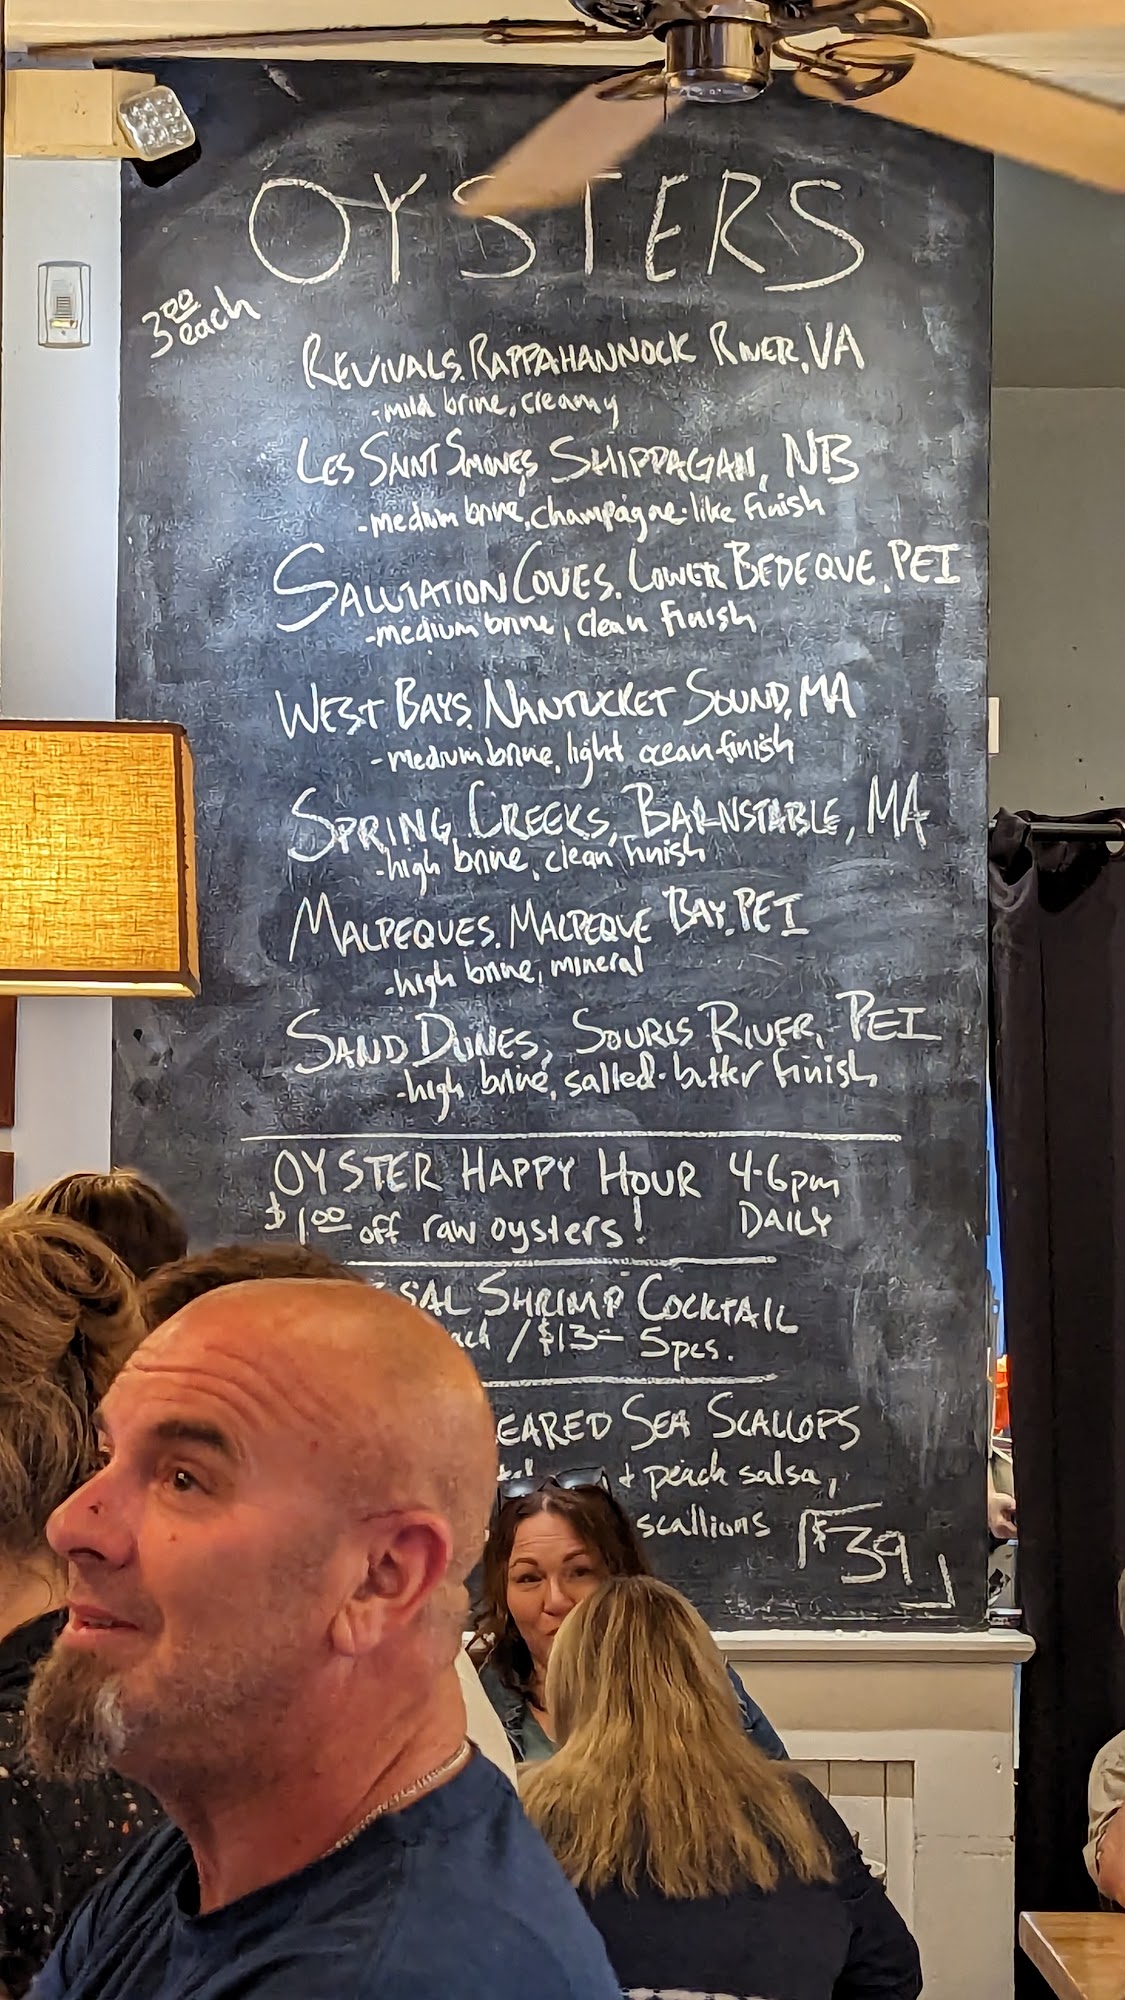 OYSTERS
3.00 each
REVIVALS, RAPPAHANNOCK RIVER, VA
-mild brine, creamy
LES SAINT SIMONES, SHIPPAGAN, NB
-medium brine, champagne-like finish
SALUTATION COVES, LOWER BEDEQUE, PEI
-medium brine, clean finish
WEST BAYS, NANTUCKET SOUND, MA
-medium brine, light ocean finish
SPRING CREEKS, BARNSTABLE, MA
-high brine, clean finish
MALPEQUES, MALPEQUE BAY, PEI
-high brine, mineral
SAND DUNES, SOURIS RIVER, PEI
-high brine, salted-butter finish
OYSTER HAPPY HOUR 4-6pm
$1.00 off raw oysters! DAILY
SHRIMP COCKTAIL
/ $13- 5pcs.
EARED SEA SCALLOPS
+ peach salsa,
scallions
$39